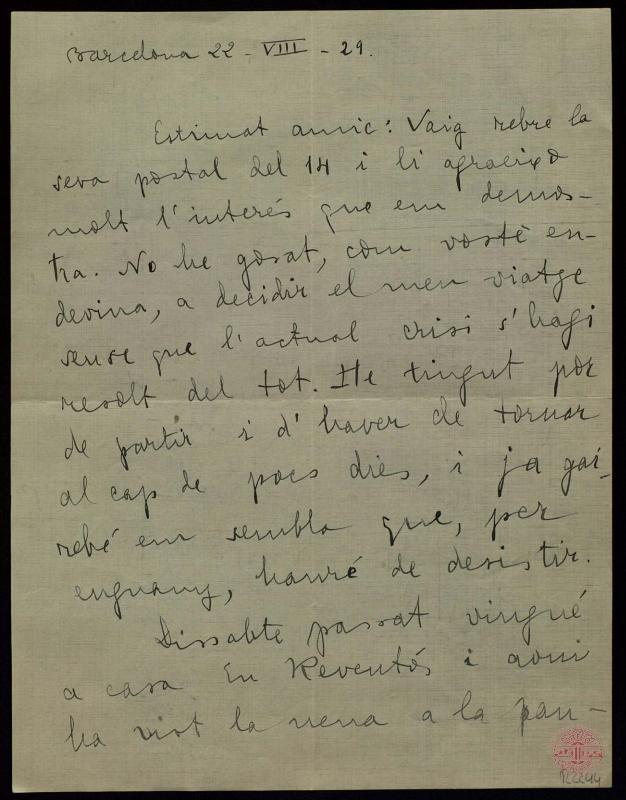 Barcelona 22 - VIII - 29.
Estimat amic: Vaig rebre la
seva postal del 14 i li agraeixo
molt l'interés que em demos-
tra. No he gosat, com vostè en-
devina, a decidir el meu viatge
sense que l'actual crisi s'hagi
resolt del tot. He tingut por
de partir i d'haver de tornar
al cap de pocs dies, i ja gai-
rebé em sembla que, per
enguany, hauré de desistir.
Dissabte passat vingué
a casa En Reventós i avui
ha vist la nena a la pan-